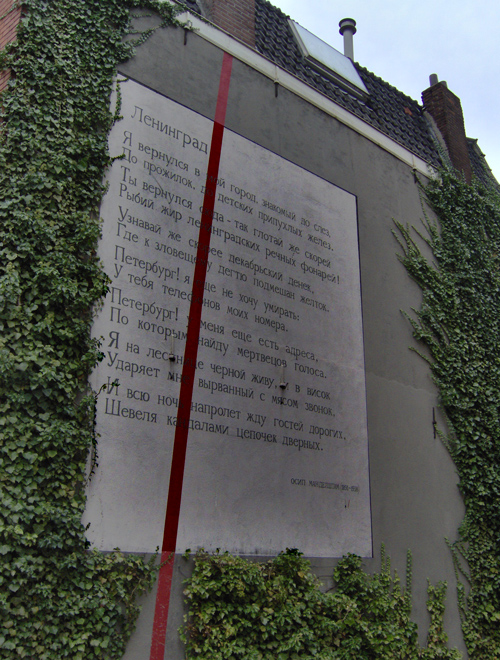 Ленинград
Я вернулся в мой город, знакомый до слез,
До прожилок, до детских припухлых желез.
Ты вернулся сюда - так глотай же скорей
Рыбий жир ленинградских речных фонарей!
Узнавай же скорее декабрьский денек,
Где к зловещему дегтю подмешан желток.
Петербург! я еще не хочу умирать:
У тебя телефонов моих номера.
Петербург! У меня еще есть адреса,
По которым найду мертвецов голоса.
Я на лестнице черной живу, и в висок
Ударяет мне вырванный с мясом звонок,
И всю ночь напролет жду гостей дорогих,
Шевеля кандалами цепочек дверных.
ОСИП МАНДЕЛЬШТАМ